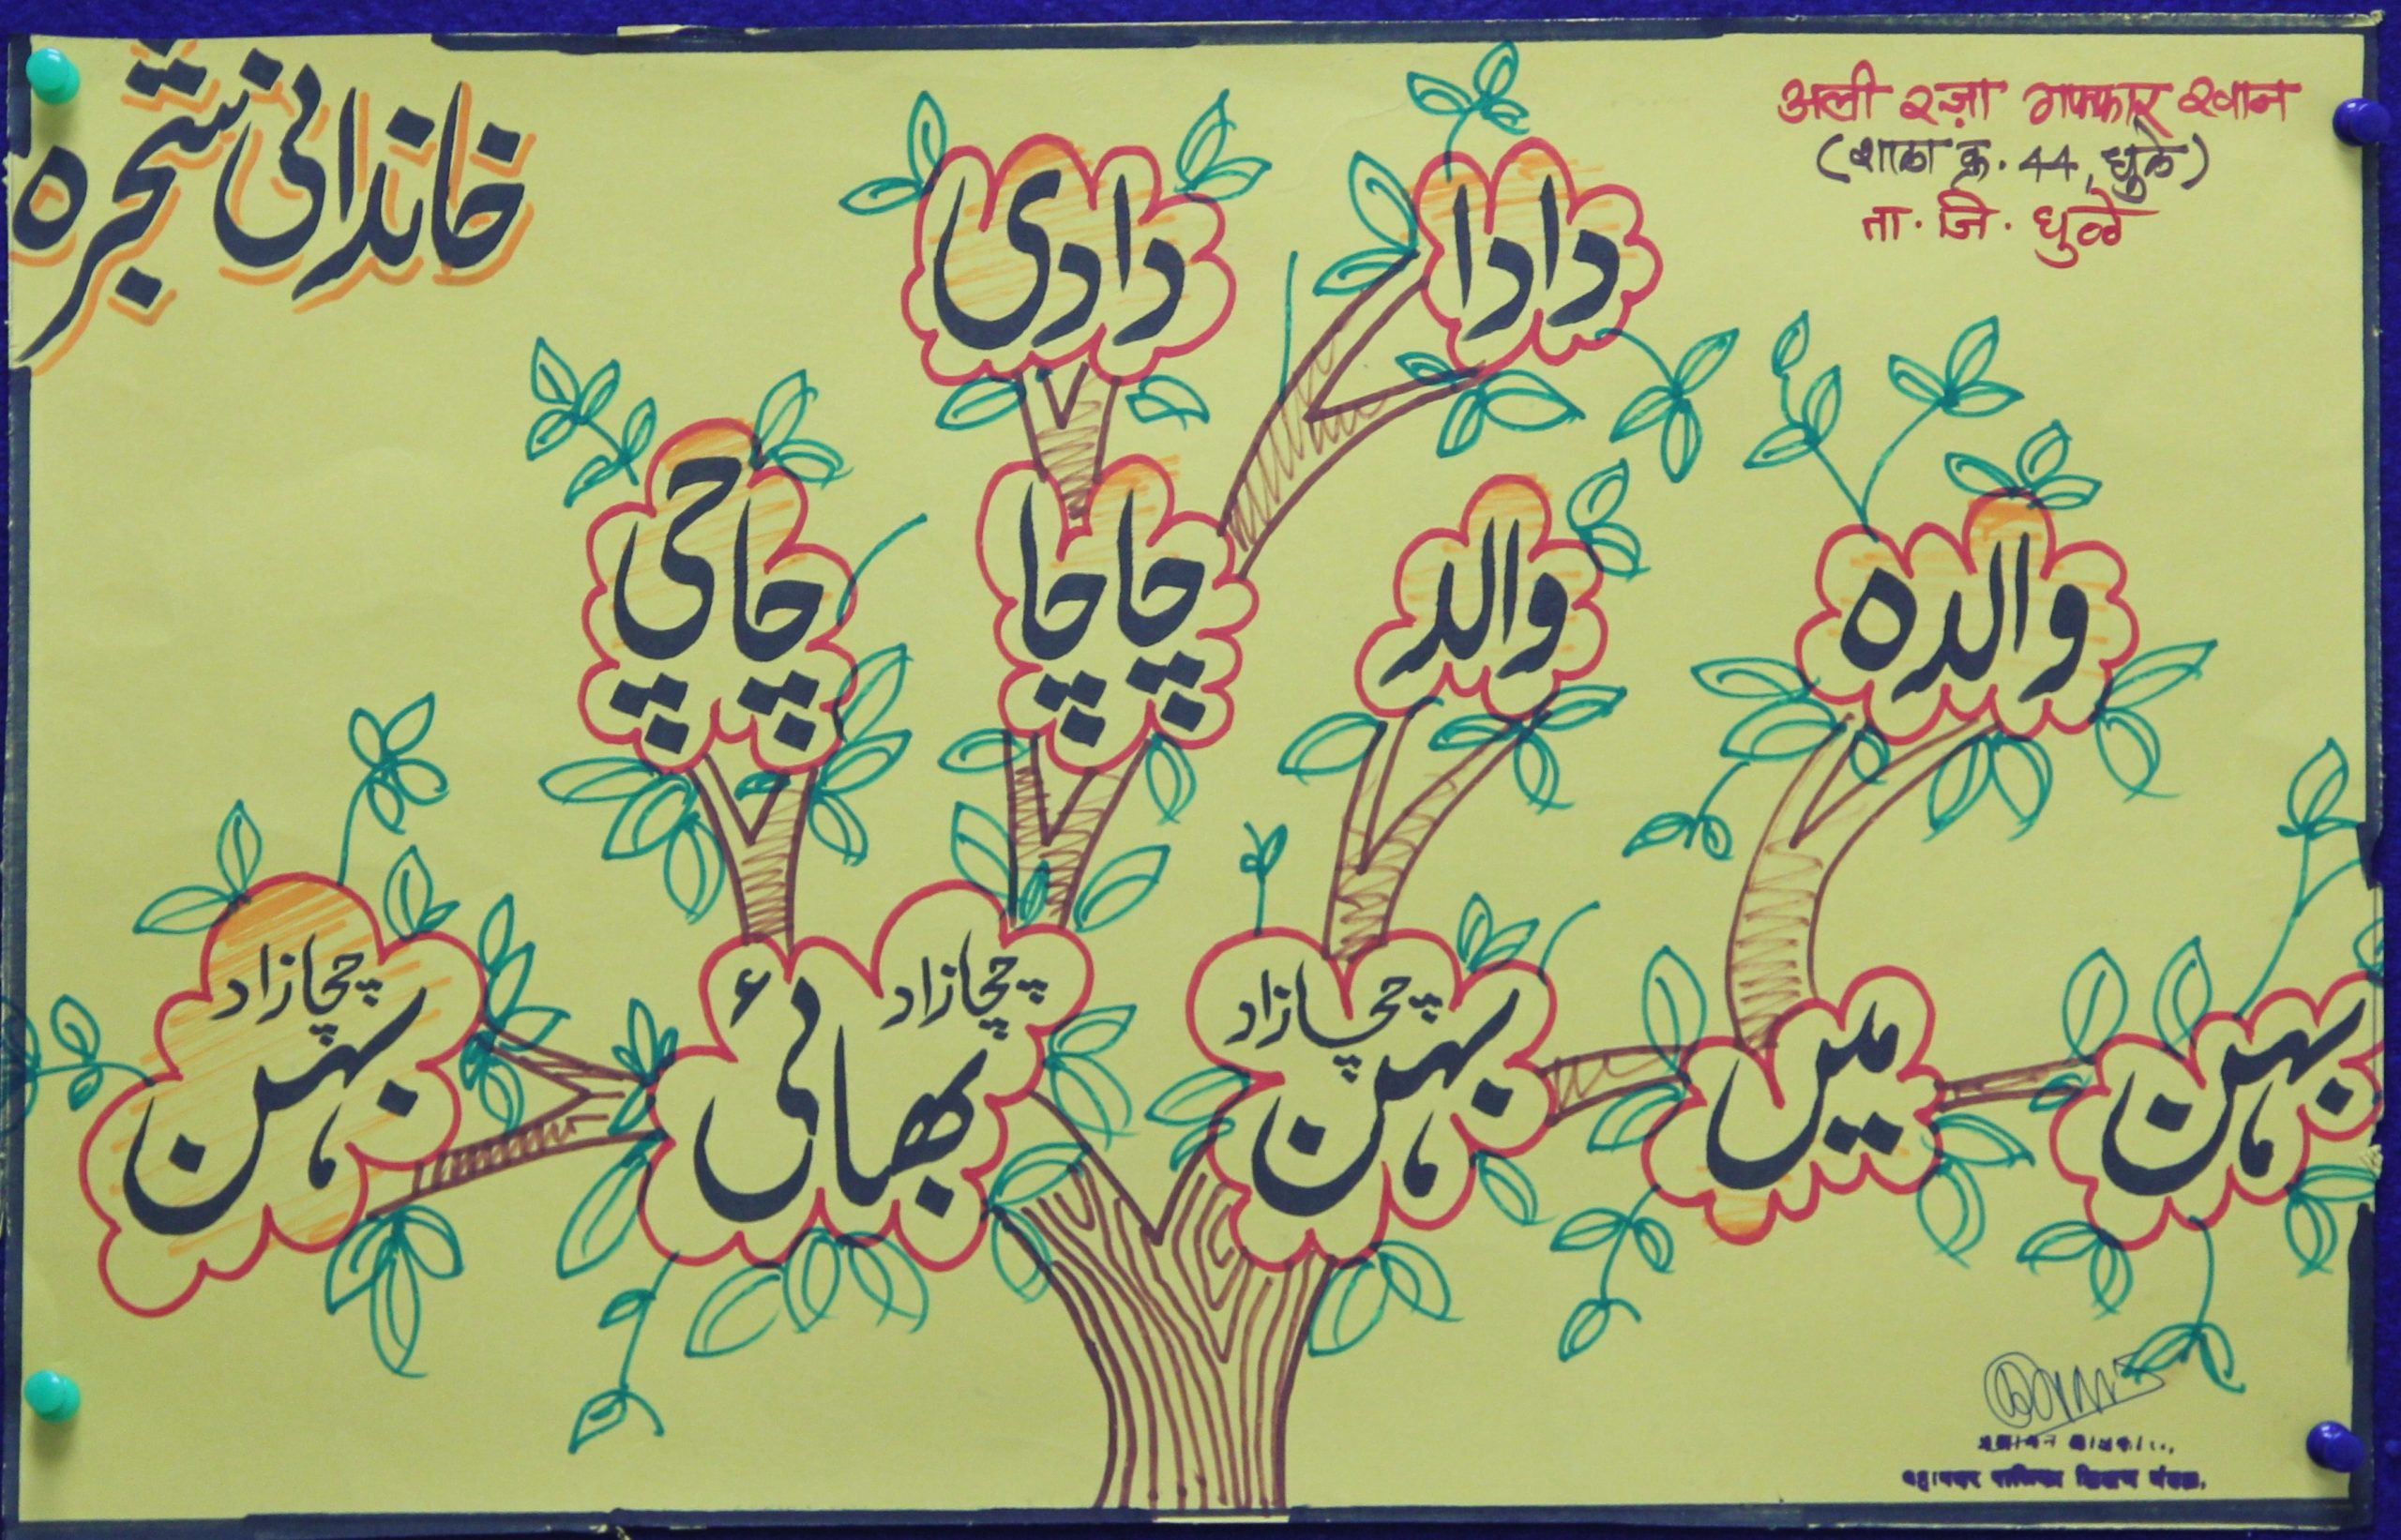 خاندانی شجرہ
अली रज़ा गफ्फार खान
(शाळा क्र. 44, धुळे)
ता. जि. धुळे
دادا
دادی
والدہ
والد
چاچا
چاچی
بہن
میں
چچازاد
بہن
چچازاد
بھائی
چچازاد
بہن